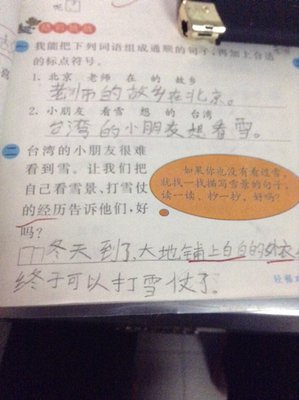 一
我能把下列词语组成通顺的句子,再加上合适
的标点符号。
1. 北京 老师 在 的 故乡
老师的故乡在北京。
2. 小朋友 看雪 想 的 台湾
台湾的小朋友想看雪。
二 台湾的小朋友很难
看到雪。让我们把
自己看雪景、打雪仗
的经历告诉他们,好
吗?
如果你也没有看过雪,
就找一找描写雪景的句子,
读一读,抄一抄,好吗?
冬天到了,大地铺上白白的外衣
终于可以打雪仗了。